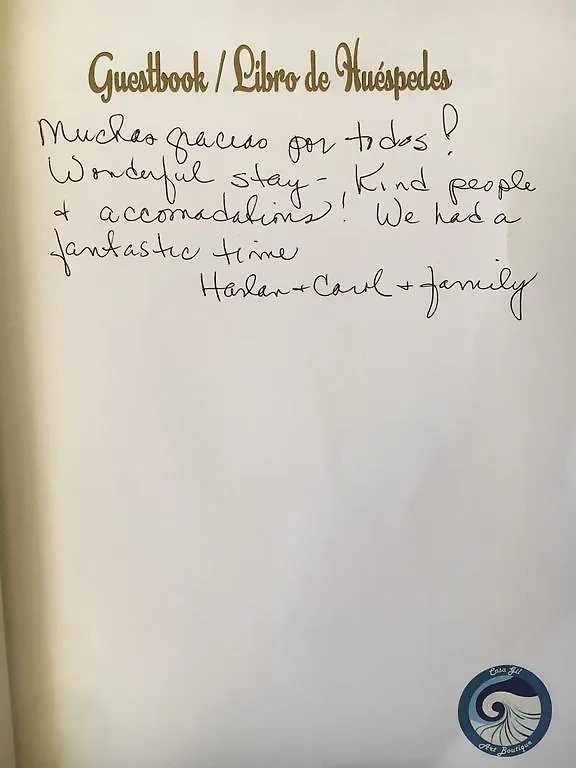 Guestbook / Libro de Huéspedes
Muchas gracias por todos!
Wonderful stay - Kind people
+ accomadations! We had a
fantastic time
Harlan + Carol + family
Casa Gil
Art Boutique